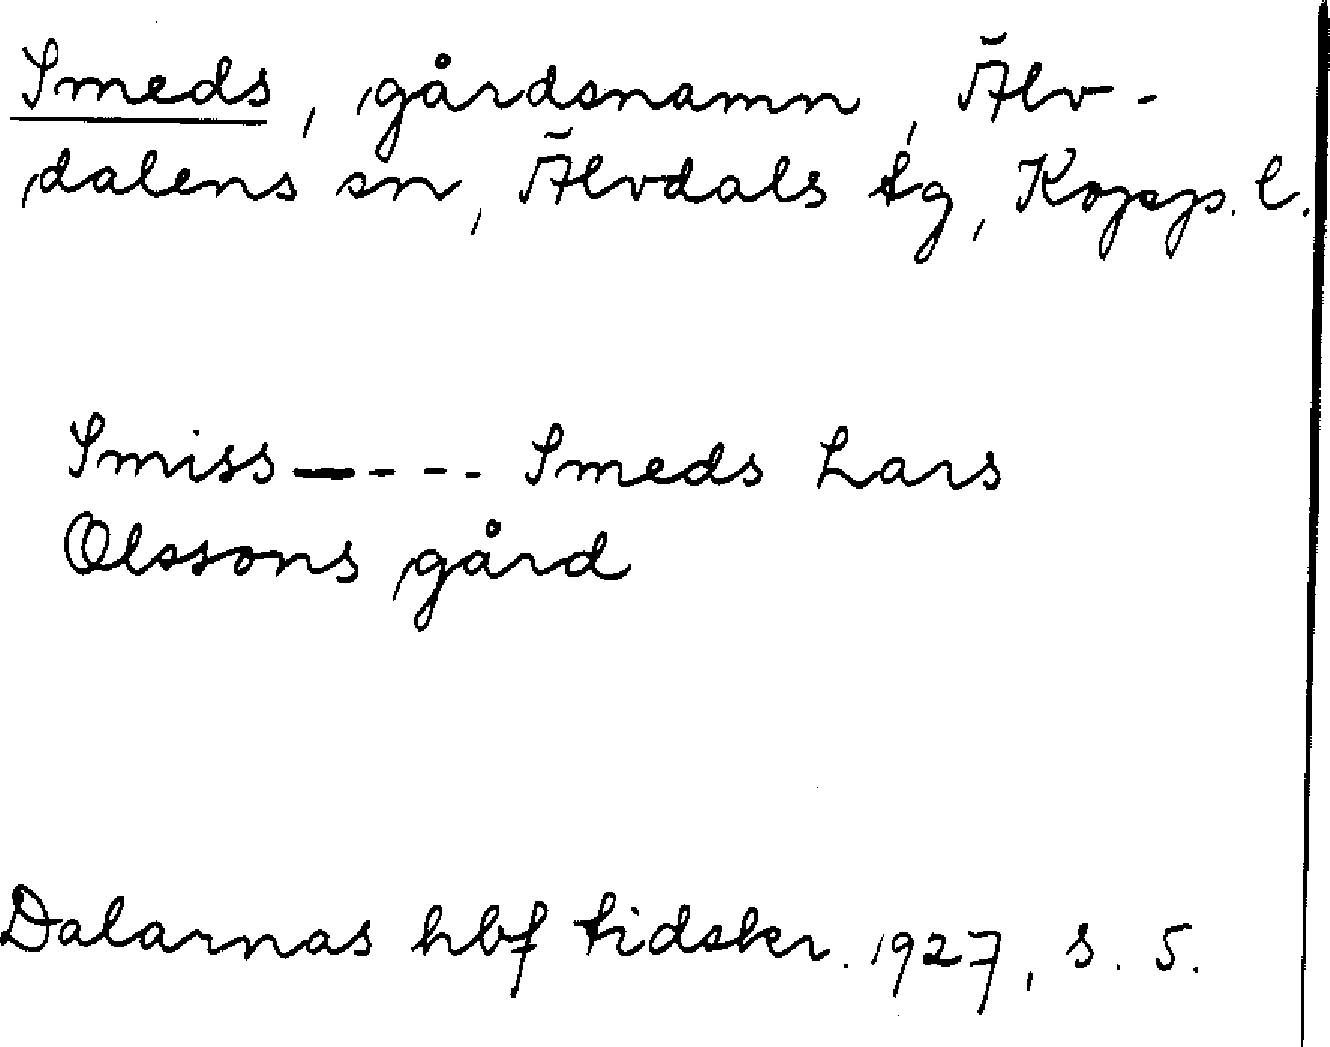 Smeds, gårdsnamn, Älv-
dalens sn, Älvdals tg, Kopp. l.
Smiss ---- Smeds Lars
Olssons gård
Dalarnas hbf tidskr. 1927, s. 5.